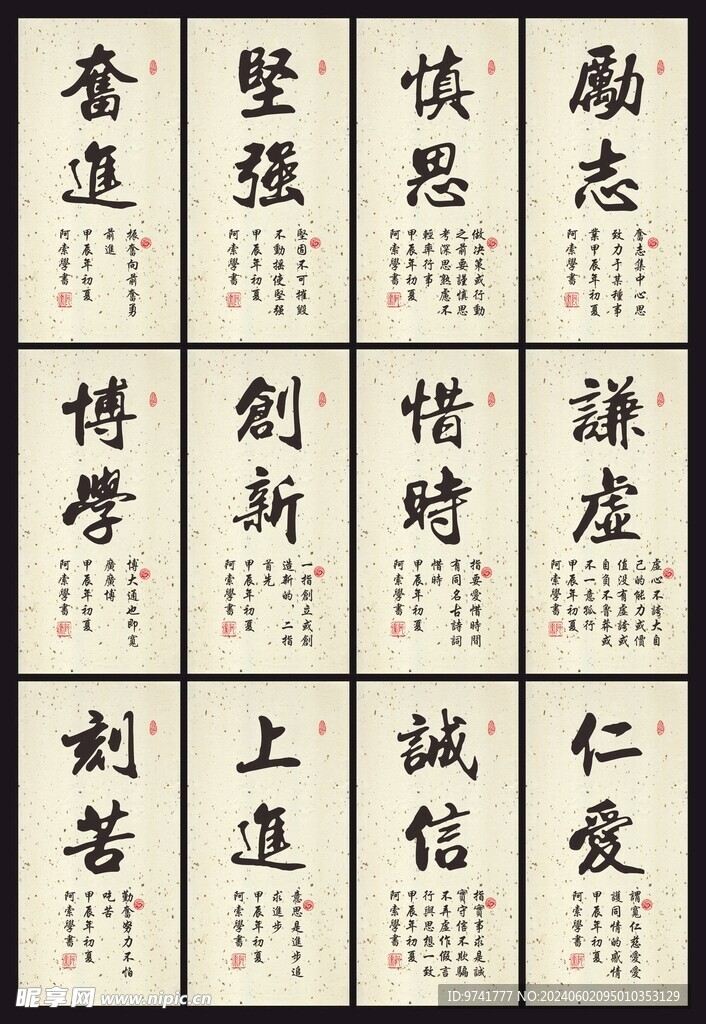 勵志
奮志集中心思
致力于某種事
業甲辰年初夏
阿索學書
慎思
做決策或行動
之前要謹慎思
考深思熟慮不
輕率行事
甲辰年初夏
阿索學書
堅強
堅固不可摧毀
不動搖使堅強
甲辰年初夏
阿索學書
奮進
振奮向前奮勇
前進
甲辰年初夏
阿索學書
謙虛
虛心不誇大自
己的能力或價
值沒有虛誇或
自負不魯莽或
不一意孤行
阿索學書
惜時
指要愛惜時間
有同名古詩詞
惜時
甲辰年初夏
阿索學書
創新
一指創立或創
造新的，二指
首先
甲辰年初夏
阿索學書
博學
博大通也即寬
廣廣博
甲辰年初夏
阿索學書
仁愛
謂寬仁慈愛愛
護同情的感情
甲辰年初夏
阿索學書
誠信
指實事求是誠
實守信不欺騙
不弄虛作假言
行與思想一致
甲辰年初夏
阿索學書
上進
意思是進步追
求進步
甲辰年初夏
阿索學書
刻苦
勤奮努力不怕
吃苦
甲辰年初夏
阿索學書
昵享网 www.nipic.cn
ID:9741777 NO:20240602095010353129